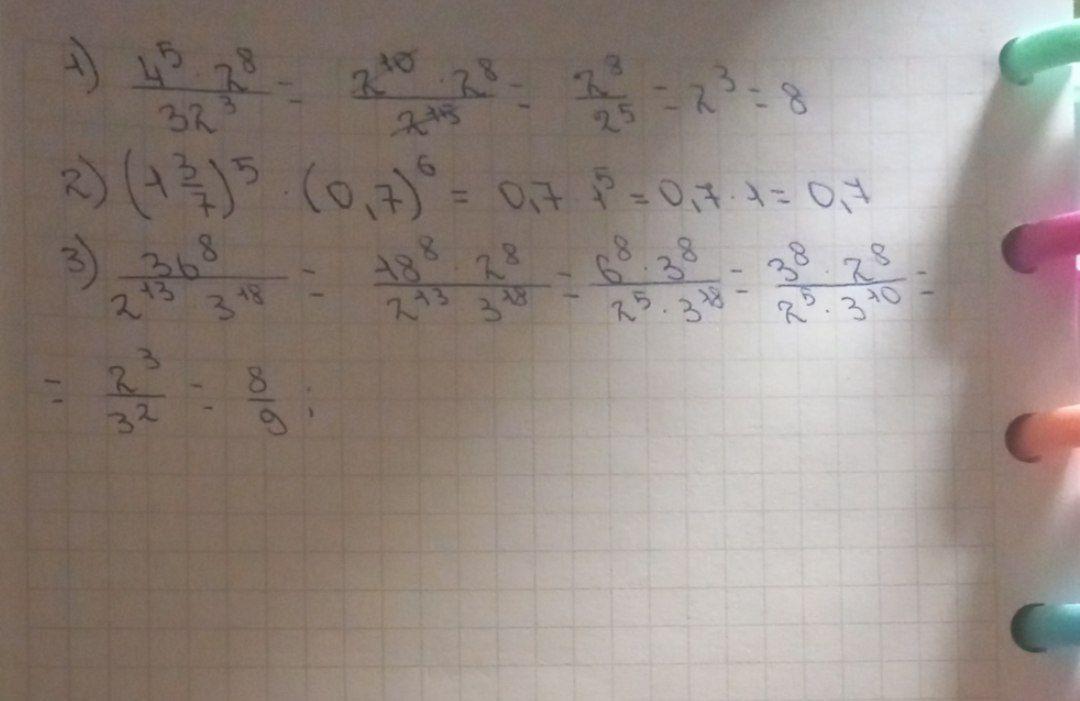 1) \frac{4^5 \cdot 2^8}{32^3} = \frac{2^{10} \cdot 2^8}{2^{15}} = \frac{2^8}{2^5} = 2^3 = 8
2) (1\frac{3}{7})^5 \cdot (0,7)^6 = 0,7 \cdot 1^5 = 0,7 \cdot 1 = 0,7
3) \frac{36^8}{2^{13} \cdot 3^{18}} = \frac{18^8 \cdot 2^8}{2^{13} \cdot 3^{18}} = \frac{6^8 \cdot 3^8}{2^5 \cdot 3^{18}} = \frac{3^8 \cdot 2^8}{2^5 \cdot 3^{10}} =
= \frac{2^3}{3^2} = \frac{8}{9};